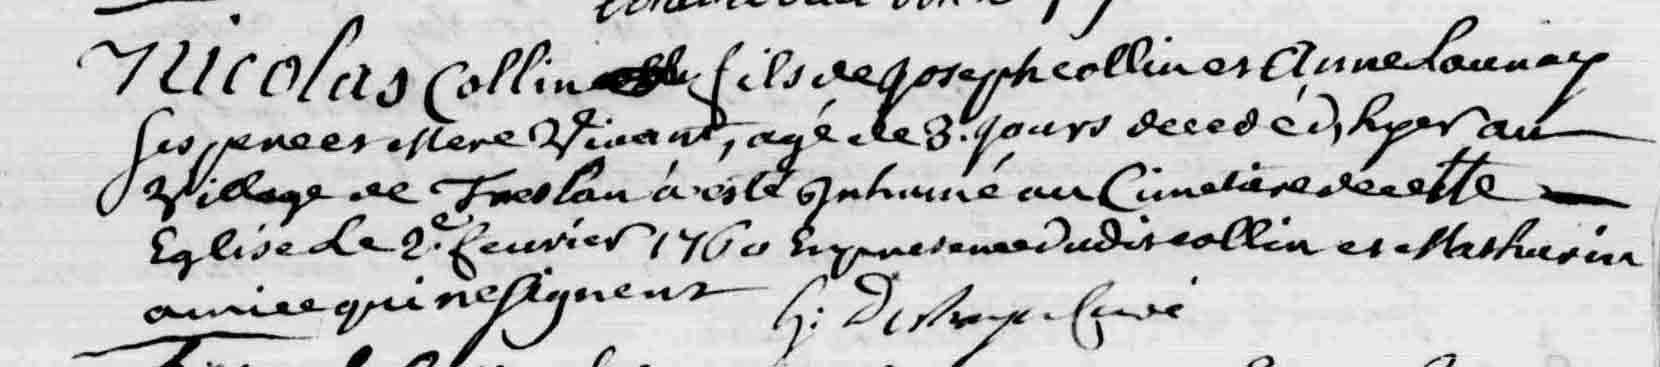 Nicolas Collin fils de Joseph collin et Anne Launay
Ses pere et Mere Vivant, agé de 3. jours decedé, hyer au
Village de Treslan à esté Inhumé au Cimetiere de cette
Eglise Le 2.e fevrier 1760 En presence dudit collin et Mathurin
amice qui ne signent
curé